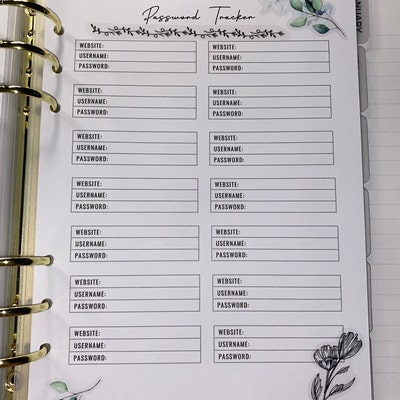 Password Tracker
JANUARY
WEBSITE:
USERNAME:
PASSWORD:
WEBSITE:
USERNAME:
PASSWORD:
WEBSITE:
USERNAME:
PASSWORD:
WEBSITE:
USERNAME:
PASSWORD:
WEBSITE:
USERNAME:
PASSWORD:
WEBSITE:
USERNAME:
PASSWORD:
WEBSITE:
USERNAME:
PASSWORD:
WEBSITE:
USERNAME:
PASSWORD:
WEBSITE:
USERNAME:
PASSWORD:
WEBSITE:
USERNAME:
PASSWORD:
WEBSITE:
USERNAME:
PASSWORD:
WEBSITE:
USERNAME:
PASSWORD:
WEBSITE:
USERNAME:
PASSWORD:
WEBSITE:
USERNAME:
PASSWORD: